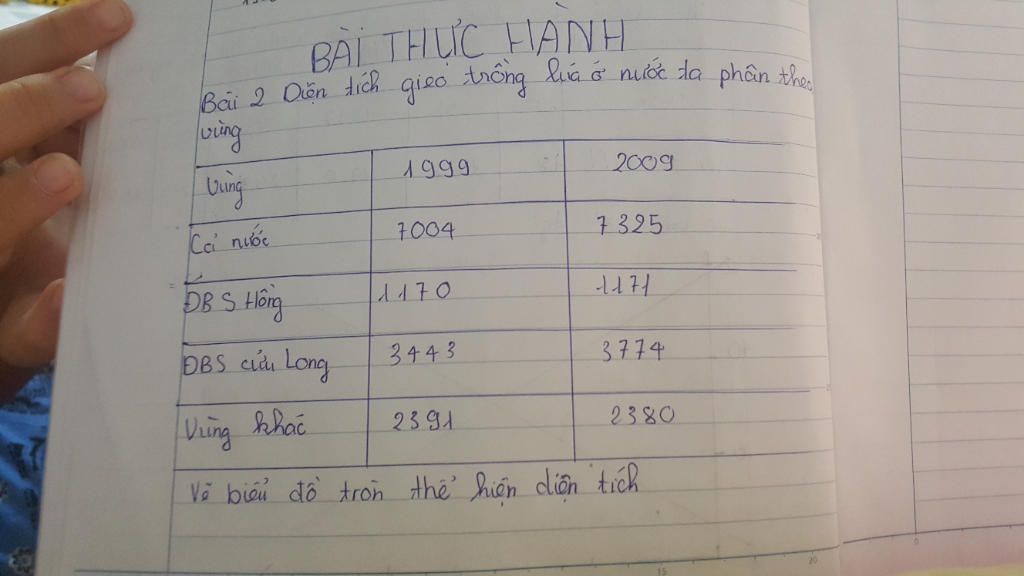 BÀI THỰC HÀNH
Bài 2 Diện tích gieo trồng lúa ở nước ta phân theo
vùng
Vùng 1999 2009
Cả nước 7004 7325
ĐBS Hồng 1170 1171
ĐBS cửu Long 3443 3774
Vùng khác 2391 2380
Vẽ biểu đồ tròn thể hiện diện tích
15
20
0